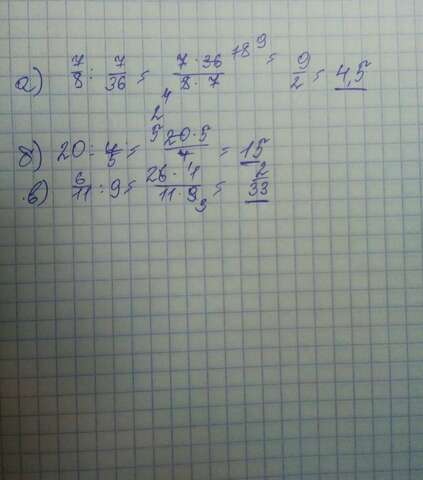 а) 7/8 : 7/36 = 7·36/8·7 18 9 = 9/2 = 4,5
4
2
б) 20 : 4/5 = 5 20·5/4 = 15
в) 6/11 : 9 = 26·1/11·9 3 = 2/33